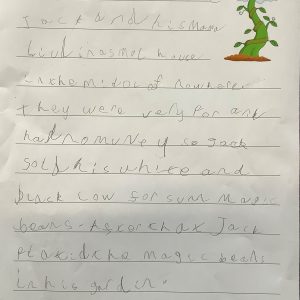 Jack and his mama
livd in a smol house
in the midol of nowhere
they were very por and
had no muney so Jack
sold his white and
black cow for sum magic
beans. After that Jack
plakid the magic beans
in his gardin.